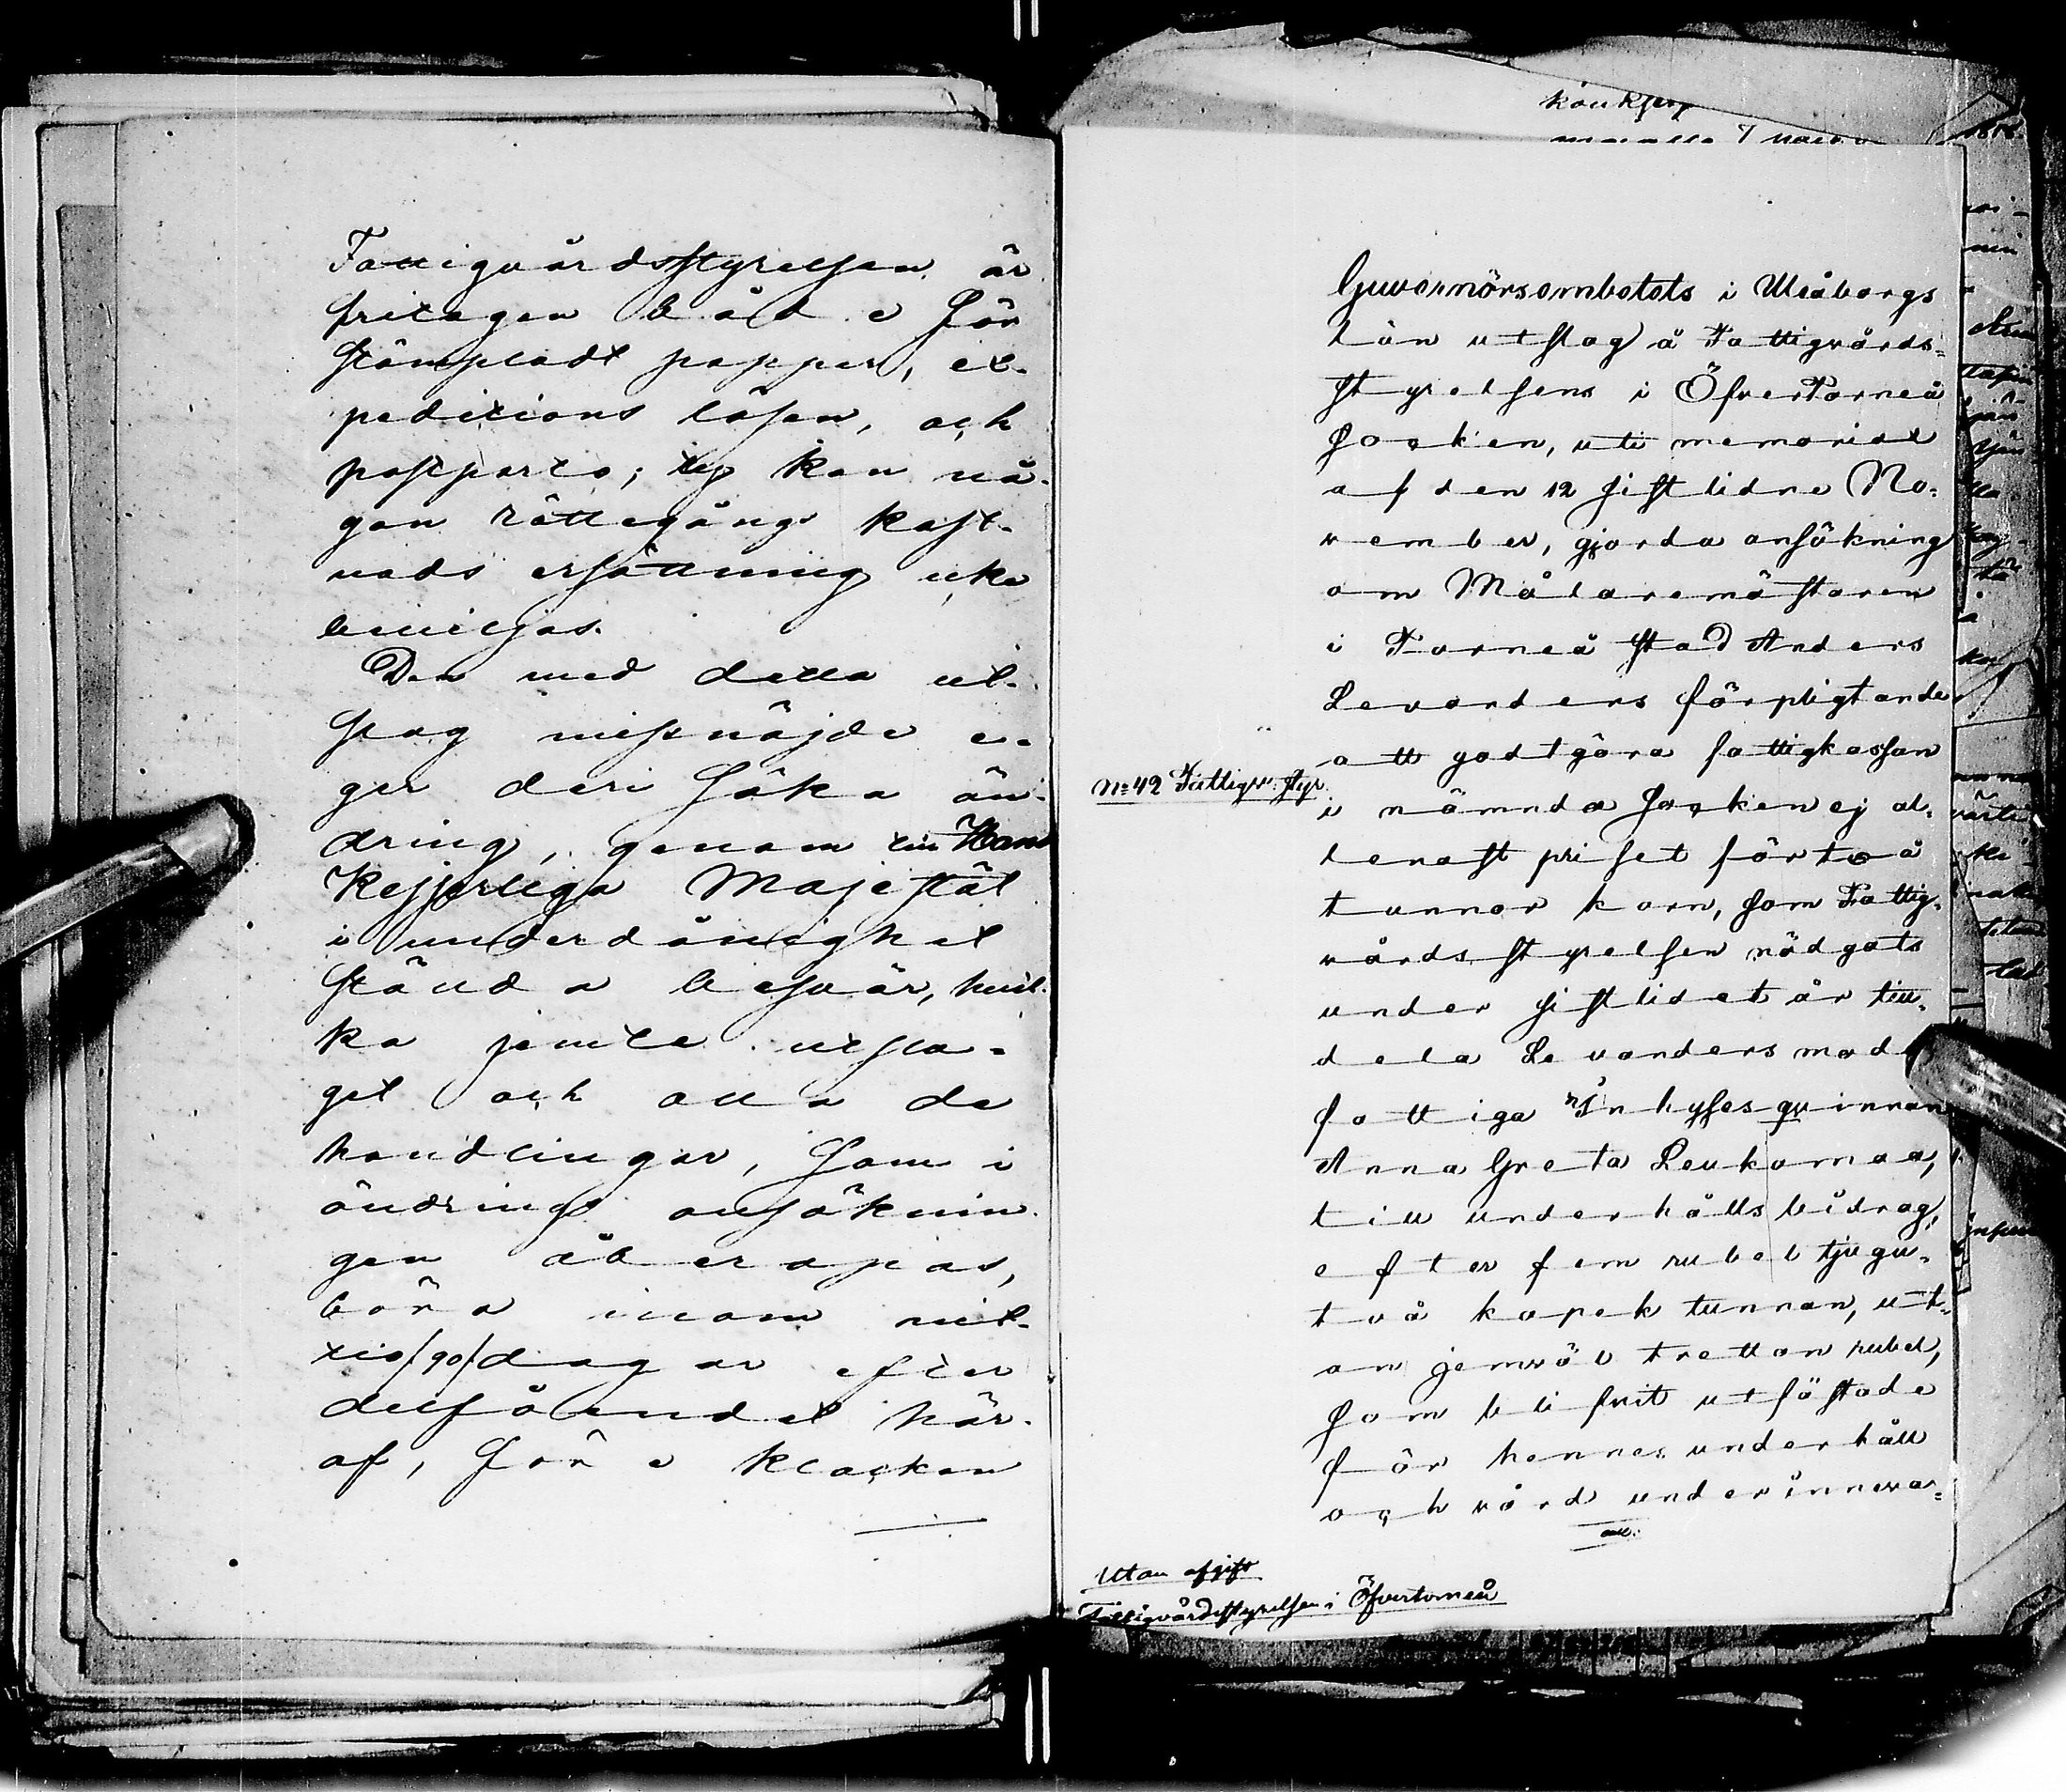 Fattigvårdsstyrelsen är
fritagen både för
stämpladt papper, ex-
peditions lösen, och
postporto; ty kan nå-
gon rättegångs kost-
nads ersättning icke
beviljas.
Den med detta ut-
slag missnöjde e-
ger deri söka än-
dring, genom till Hans
Kejserliga Majestät
i underdånighet
stälda besvär, hvil-
ka jemte utsla-
get och alla de
handlingar, som i
ändrings ansöknin-
gen åberopas,
böra inom nit-
tio/90/dagar efter
delfåendet här-
af, före klockan
Guvernörsembetets i Uleåborgs
län utslag å Fattigvårds-
styrelsens i ÖfverTorneå
socken, uti memorial
af den 12 sistlidne No-
vember, gjorda ansökning
om Målaremästaren
i Torneå stad Anders
Levanders förpligtande
att godtgöra fattigkassan
No 42 Fattigv: styr.
i nämnda socken ej al-
lenast priset för två
tunnor korn, som Fattig-
vårdsstyrelsen nödgats
under sistlidet år till-
dela Levanders moder
fattiga Inhyses qvinnan
Anna Greta Leukomaa,
till underhålls bidrag,
efter fem rubel tjugu-
två kopek tunnan, ut-
an jemväl tretton rubel,
som blifvit utfästade
för hennes underhåll
och vård under inneva-
Utan afgift
Fattigvårdsstyrelsen i Öfvertorneå